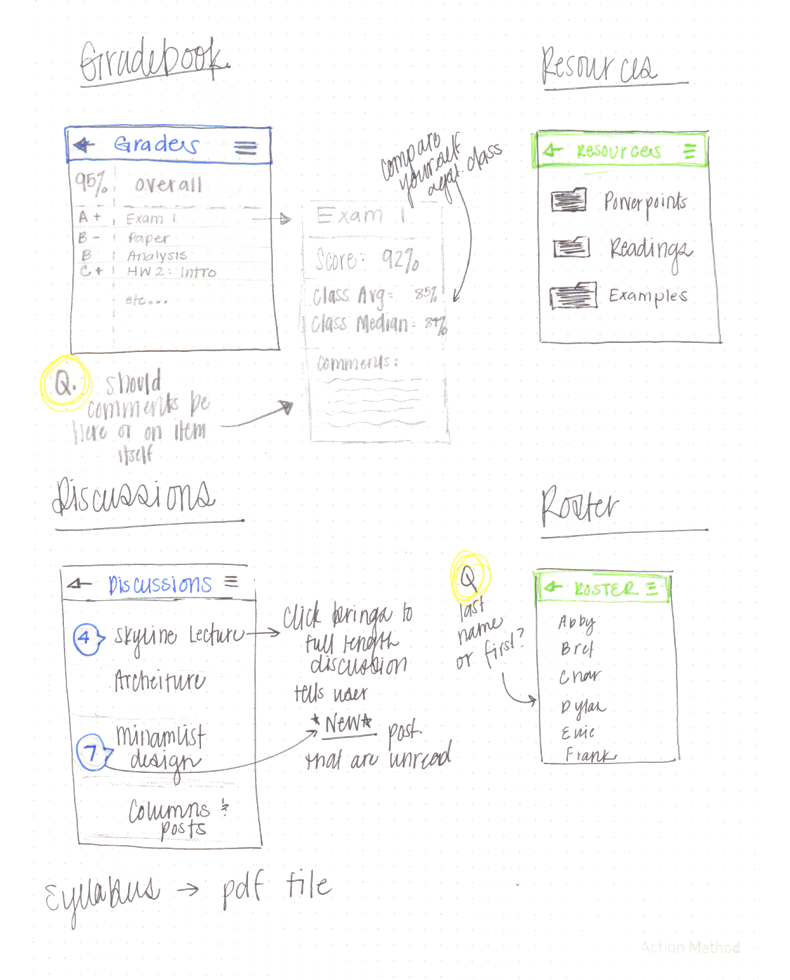 Gradebook
Resources
Grades
95% overall
A+ Exam 1
B- Paper
B Analysis
C+ HW2: Intro
etc...
compare
yourself
agst. class
Exam 1
Score: 92%
Class Avg- 85%
Class Median- 84%
comments:
Resources
Powerpoints
Readings
Examples
Q. should
comments be
here or on item
itself
Discussions
Roster
Discussions
4 Skyline Lecture
Architure
7 minamlist
design
Columns &
posts
Click brings to
full length
discussion
tells user
*New* post
that are unread
Q
last
name
or first?
ROSTER
Abby
Bret
Char
Dylan
Evie
Frank
Syllabus → pdf file
Action Method